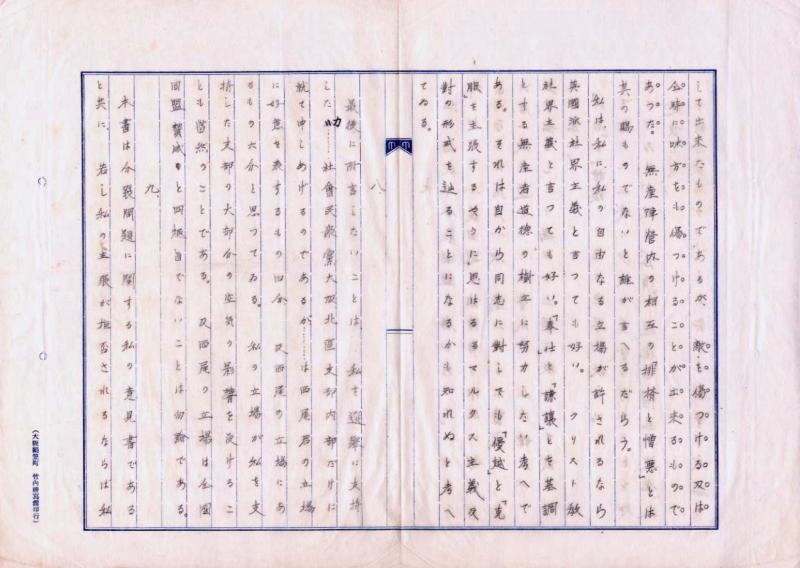 して出来たものであるが、敵を傷つける又は
全時に味方をも傷つけることが出来るもので
あつた。無産陣営内の相互の排擠と憎悪とは
其の賜ものでないと誰が言へるだらう。
私は、私に、私の自由なる立場が許されるなら
英國派社界主義と言つても好い。クリスト教
社界主義と言つても好い。「奉仕」と「謙譲」とを基調
とする無産者道徳の樹立に努力したい考へで
ある。それは自から同志に対してでも「優越」と「克
服」を主張するやうに思はるるマルクス主義反
対の形式を辿ることになるかも知れぬと考へ
てゐる。
八
最後に附言したいことは、私を選挙に支持
した……社會民衆黨大阪北區支部内部だけに
就て申しあげるのであるが……は西尾君の立場
に好意を表するもの四分、反西尾の立場にあ
るもの六分と思つてゐる。私の立場が私を支
持した支部の大部分の空気の影響を受けるこ
とも當然のことである。反西尾の立場は全國
同盟賛成のと同旨でないことは勿論である。
九、
本書は分裂問題に関する私の意見書である
と共に、若し私の主張が拒否されるならば私
(大阪 竹内 印行)